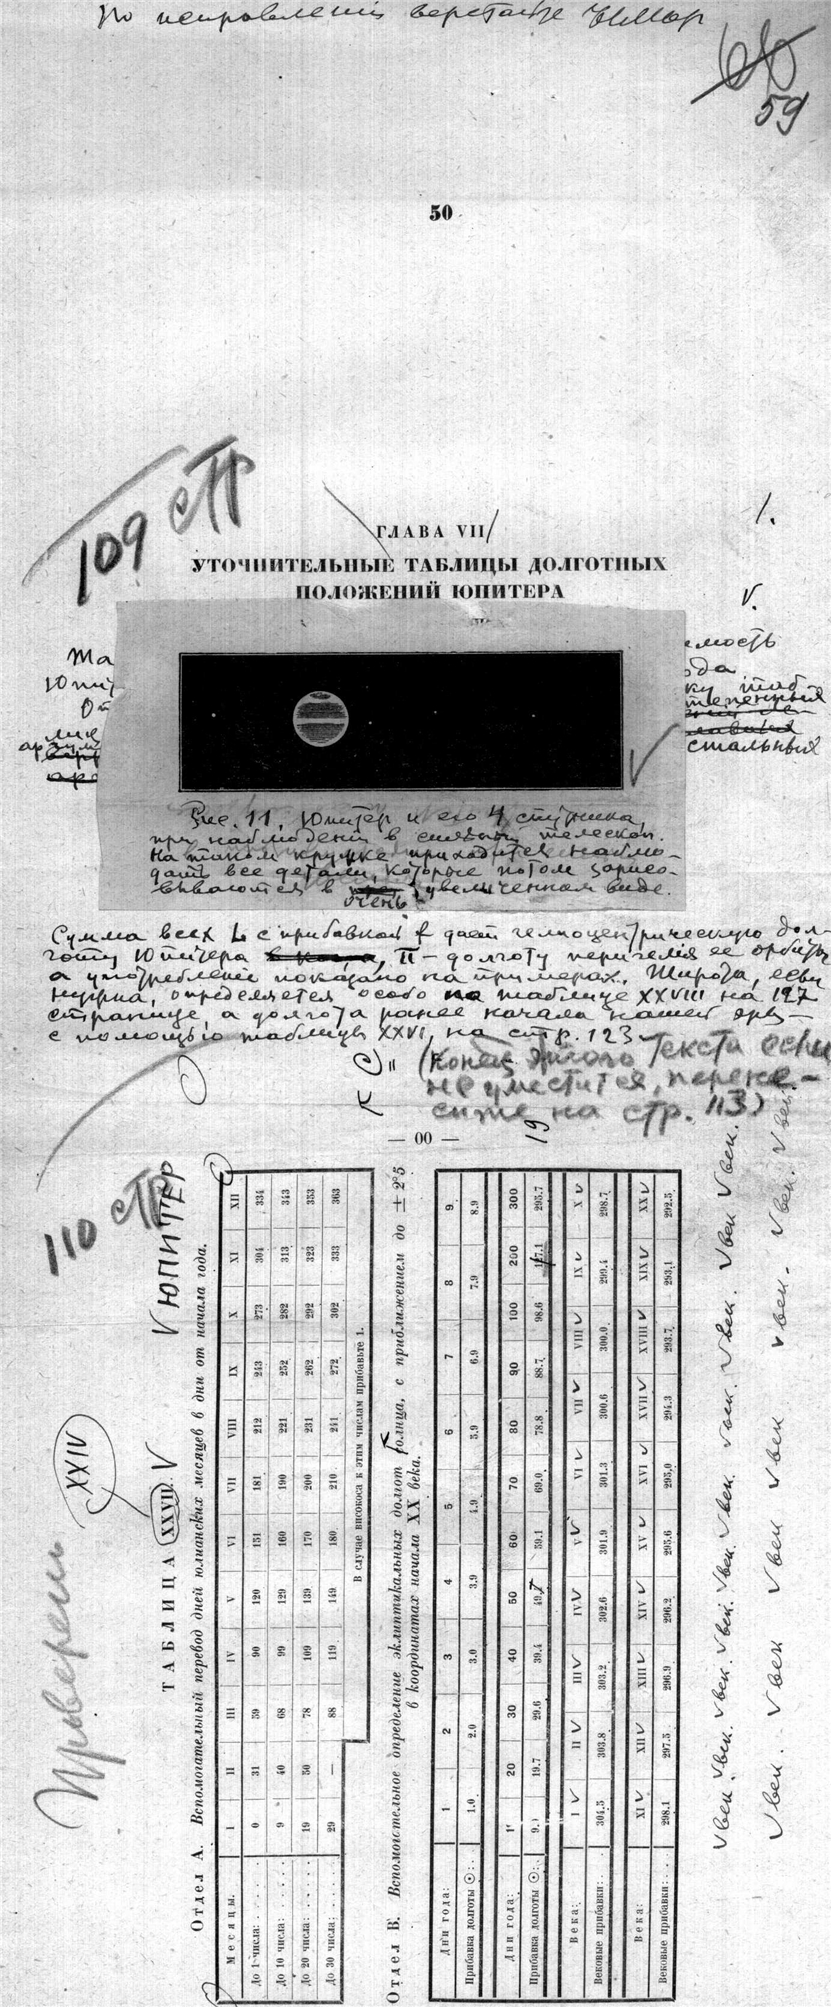 По исправлении верстайте
59
50
109 стр
ГЛАВА VII
УТОЧНИТЕЛЬНЫЕ ТАБЛИЦЫ ДОЛГОТНЫХ
ПОЛОЖЕНИЙ ЮПИТЕРА
Рис. 11. Юпитер и его 4 спутника,
при наблюдении в сильный телескоп.
На таком кружке приходится наблю-
дать все детали, которые потом зарисо-
вываются в очень увеличенном виде.
Сумма всех L с прибавкой f дает гелиоцентрическую дол-
готу Юпитера, П - долготу перигелия ее орбиты,
а употребление показано на примерах. Широта, если
нужна, определяется особо по таблице XXVIII на 127
странице, а долгота ранее начала нашей эры —
с помощью таблицы XXVI, на стр. 123
(Конец этого текста если
не уместится, перене-
сите на стр. 113)
— 00 —
19
110 стр
Проверены
XXIV
ТАБЛИЦА XXVII. V ЮПИТЕР
Отдел А. Вспомогательный перевод дней юлианских месяцев в дни от начала года.
Месяцы. I II III IV V VI VII VIII IX X XI XII
До 1 числа: 0 31 59 90 120 151 181 212 243 273 304 334
До 10 числа: 9 40 68 99 129 160 190 221 252 282 313 343
До 20 числа: 19 50 78 109 139 170 200 231 262 292 323 353
До 30 числа: 29 — 88 119 149 180 210 241 272 302 333 363
В случае високоса к этим числам прибавьте 1.
Отдел В. Вспомогательное определение эклиптикальных долгот солнца, с приближением до ± 2°5
в координатах начала XX века.
Дни года: 1 2 3 4 5 6 7 8 9
Прибавка долготы ☉: 1.0 2.0 3.0 3.9 4.9 5.9 6.9 7.9 8.9
Дни года: 20 30 40 50 60 70 80 90 100 200 300
Прибавка долготы ☉: 19.7 29.6 39.4 49.7 59.1 69.0 78.8 88.7 98.6 295.7
Века: I II III IV V VI VII VIII IX X
Вековые прибавки: 304.5 303.8 303.2 302.6 301.9 301.3 300.6 300.0 299.4 298.7
Века: XI XII XIII XIV XV XVI XVII XVIII XIX XX
Вековые прибавки: 298.1 297.5 296.9 296.2 295.6 295.0 294.3 293.7 293.1 292.5
V век. V век. V век. V век. V век. V век. V век. V век. V век. V век.
V век. V век V век V век V век. V век. V век.